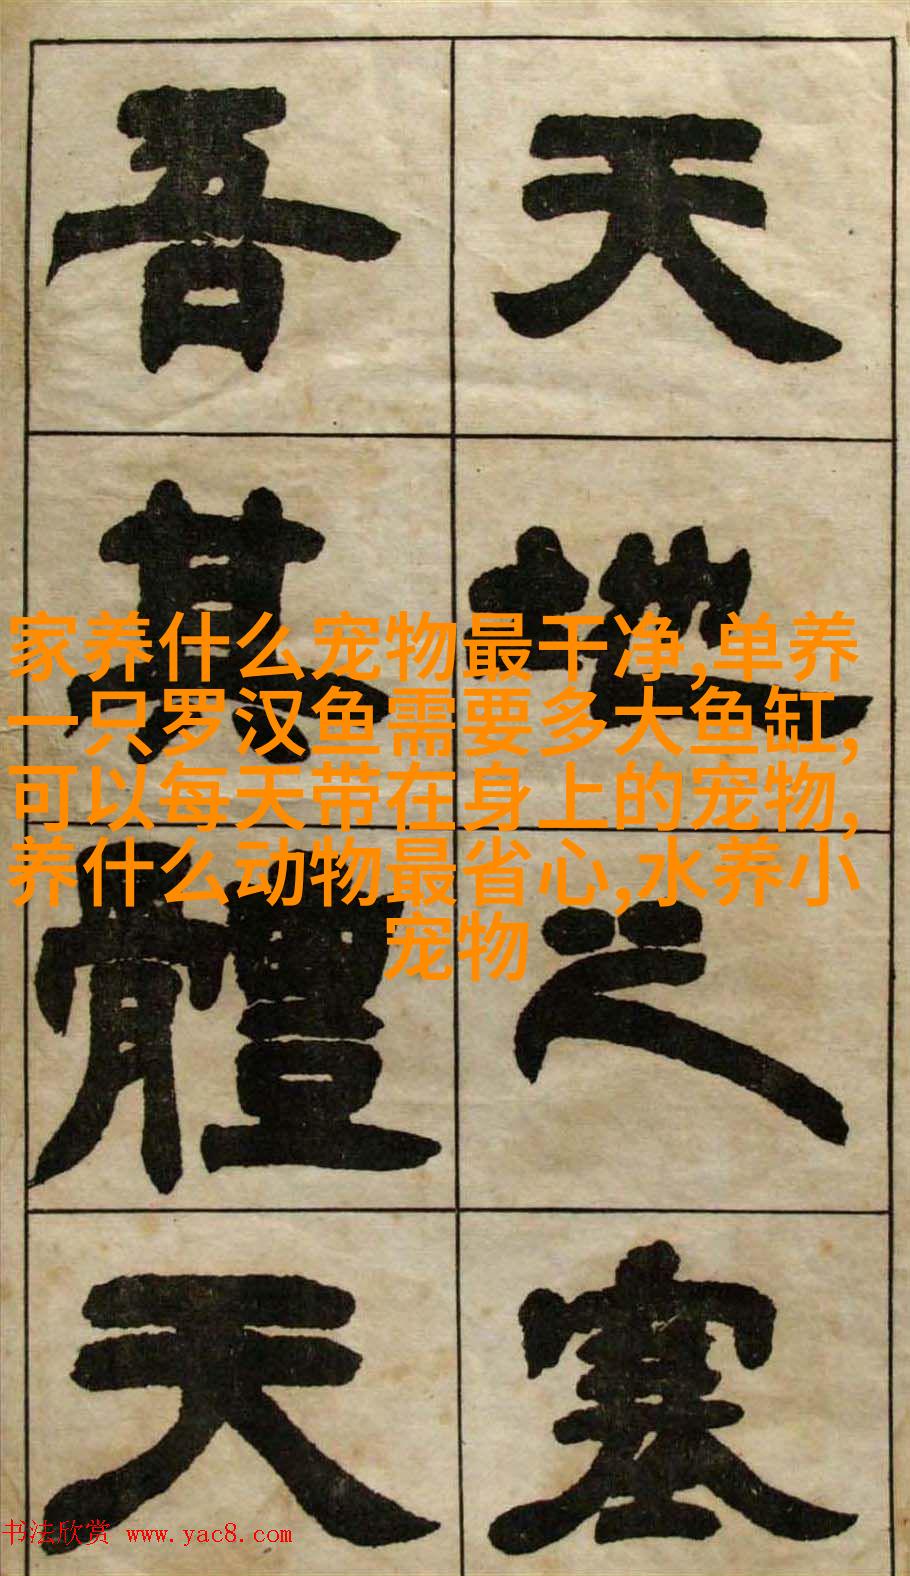 天地之塞
吾其體天
家养什么宠物最干净,单养
一只罗汉鱼需要多大鱼缸,
可以每天带在身上的宠物,
养什么动物最省心,水养小
宠物
书法欣赏 www.yac8.com